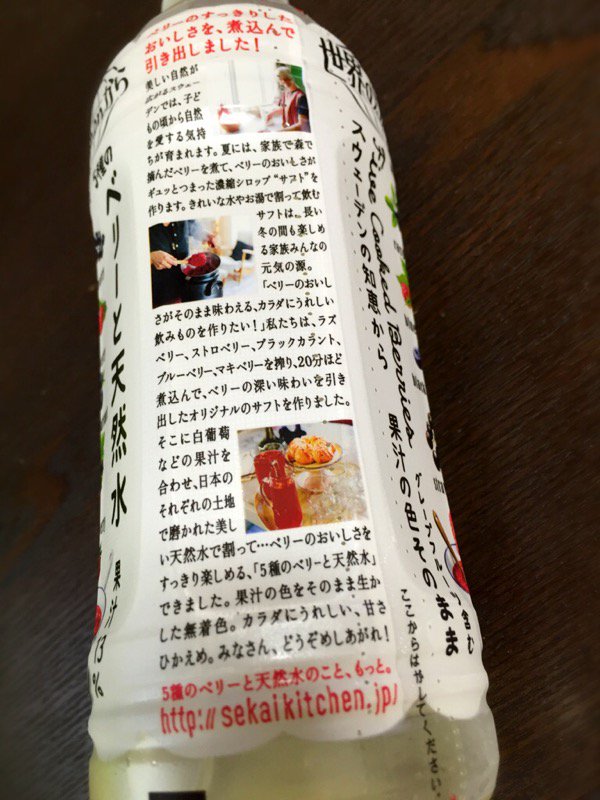 ベリーのすっきりした
おいしさを、煮込んで
引き出しました！
美しい自然が
広がるスウェー
デンでは、子ど
もの頃から自然
を愛する気持
ちが育まれます。夏には、家族で森で
摘んだベリーを煮て、ベリーのおいしさが
ギュッとつまった濃縮シロップ“サフト”を
作ります。きれいな水やお湯で割って飲む
サフトは、長い
冬の間も楽しめ
る家族みんなの
元気の源。
「ベリーのおいし
さがそのまま味わえる、カラダにうれしい
飲みものを作りたい！」私たちは、ラズ
ベリー、ストロベリー、ブラックカラント、
ブルーベリー、マキベリーを搾り、20分ほど
煮込んで、ベリーの深い味わいを引き
出したオリジナルのサフトを作りました。
そこに白葡萄
などの果汁を
合わせ、日本の
それぞれの土地
で磨かれた美し
い天然水で割って…ベリーのおいしさを
すっきり楽しめる、「5種のベリーと天然水」
できました。果汁の色をそのまま生か
した無着色。カラダにうれしい、甘さ
ひかえめ。みなさん、どうぞめしあがれ！
5種のベリーと天然水のこと、もっと。
http://sekaikitchen.jp/
世界の
Slow Cooked Berries
スウェーデンの知恵から
果汁の色そのまま
グレープフルーツ含む
ここからはがしてください。
5種の
ベリーと天然水
果汁13%